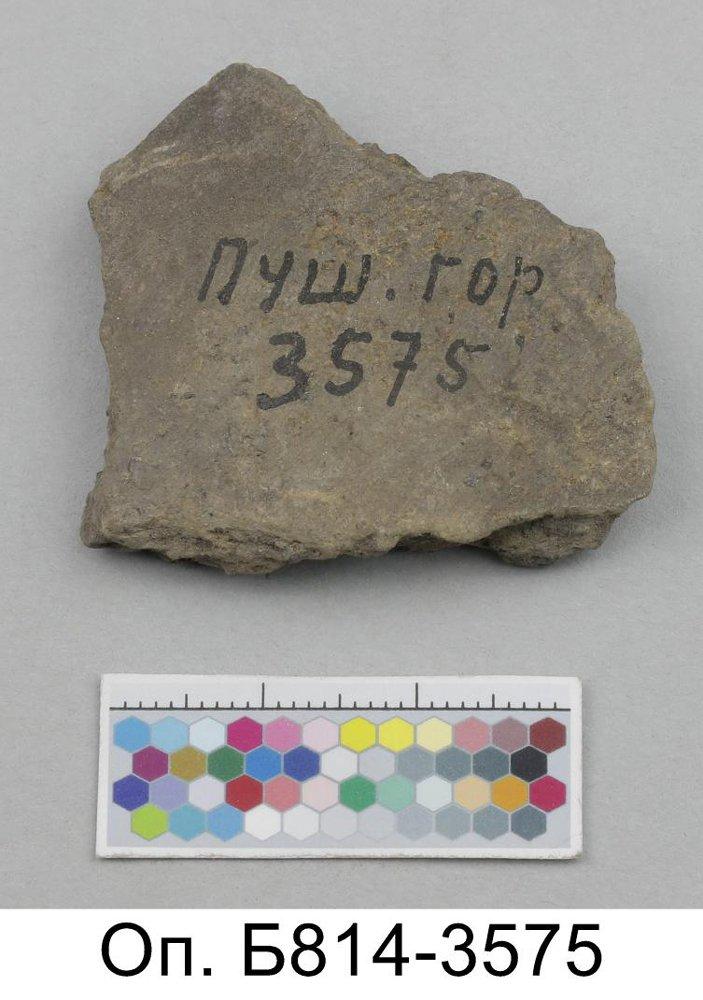 Пуш. гор
3575
Оп. Б814-3575